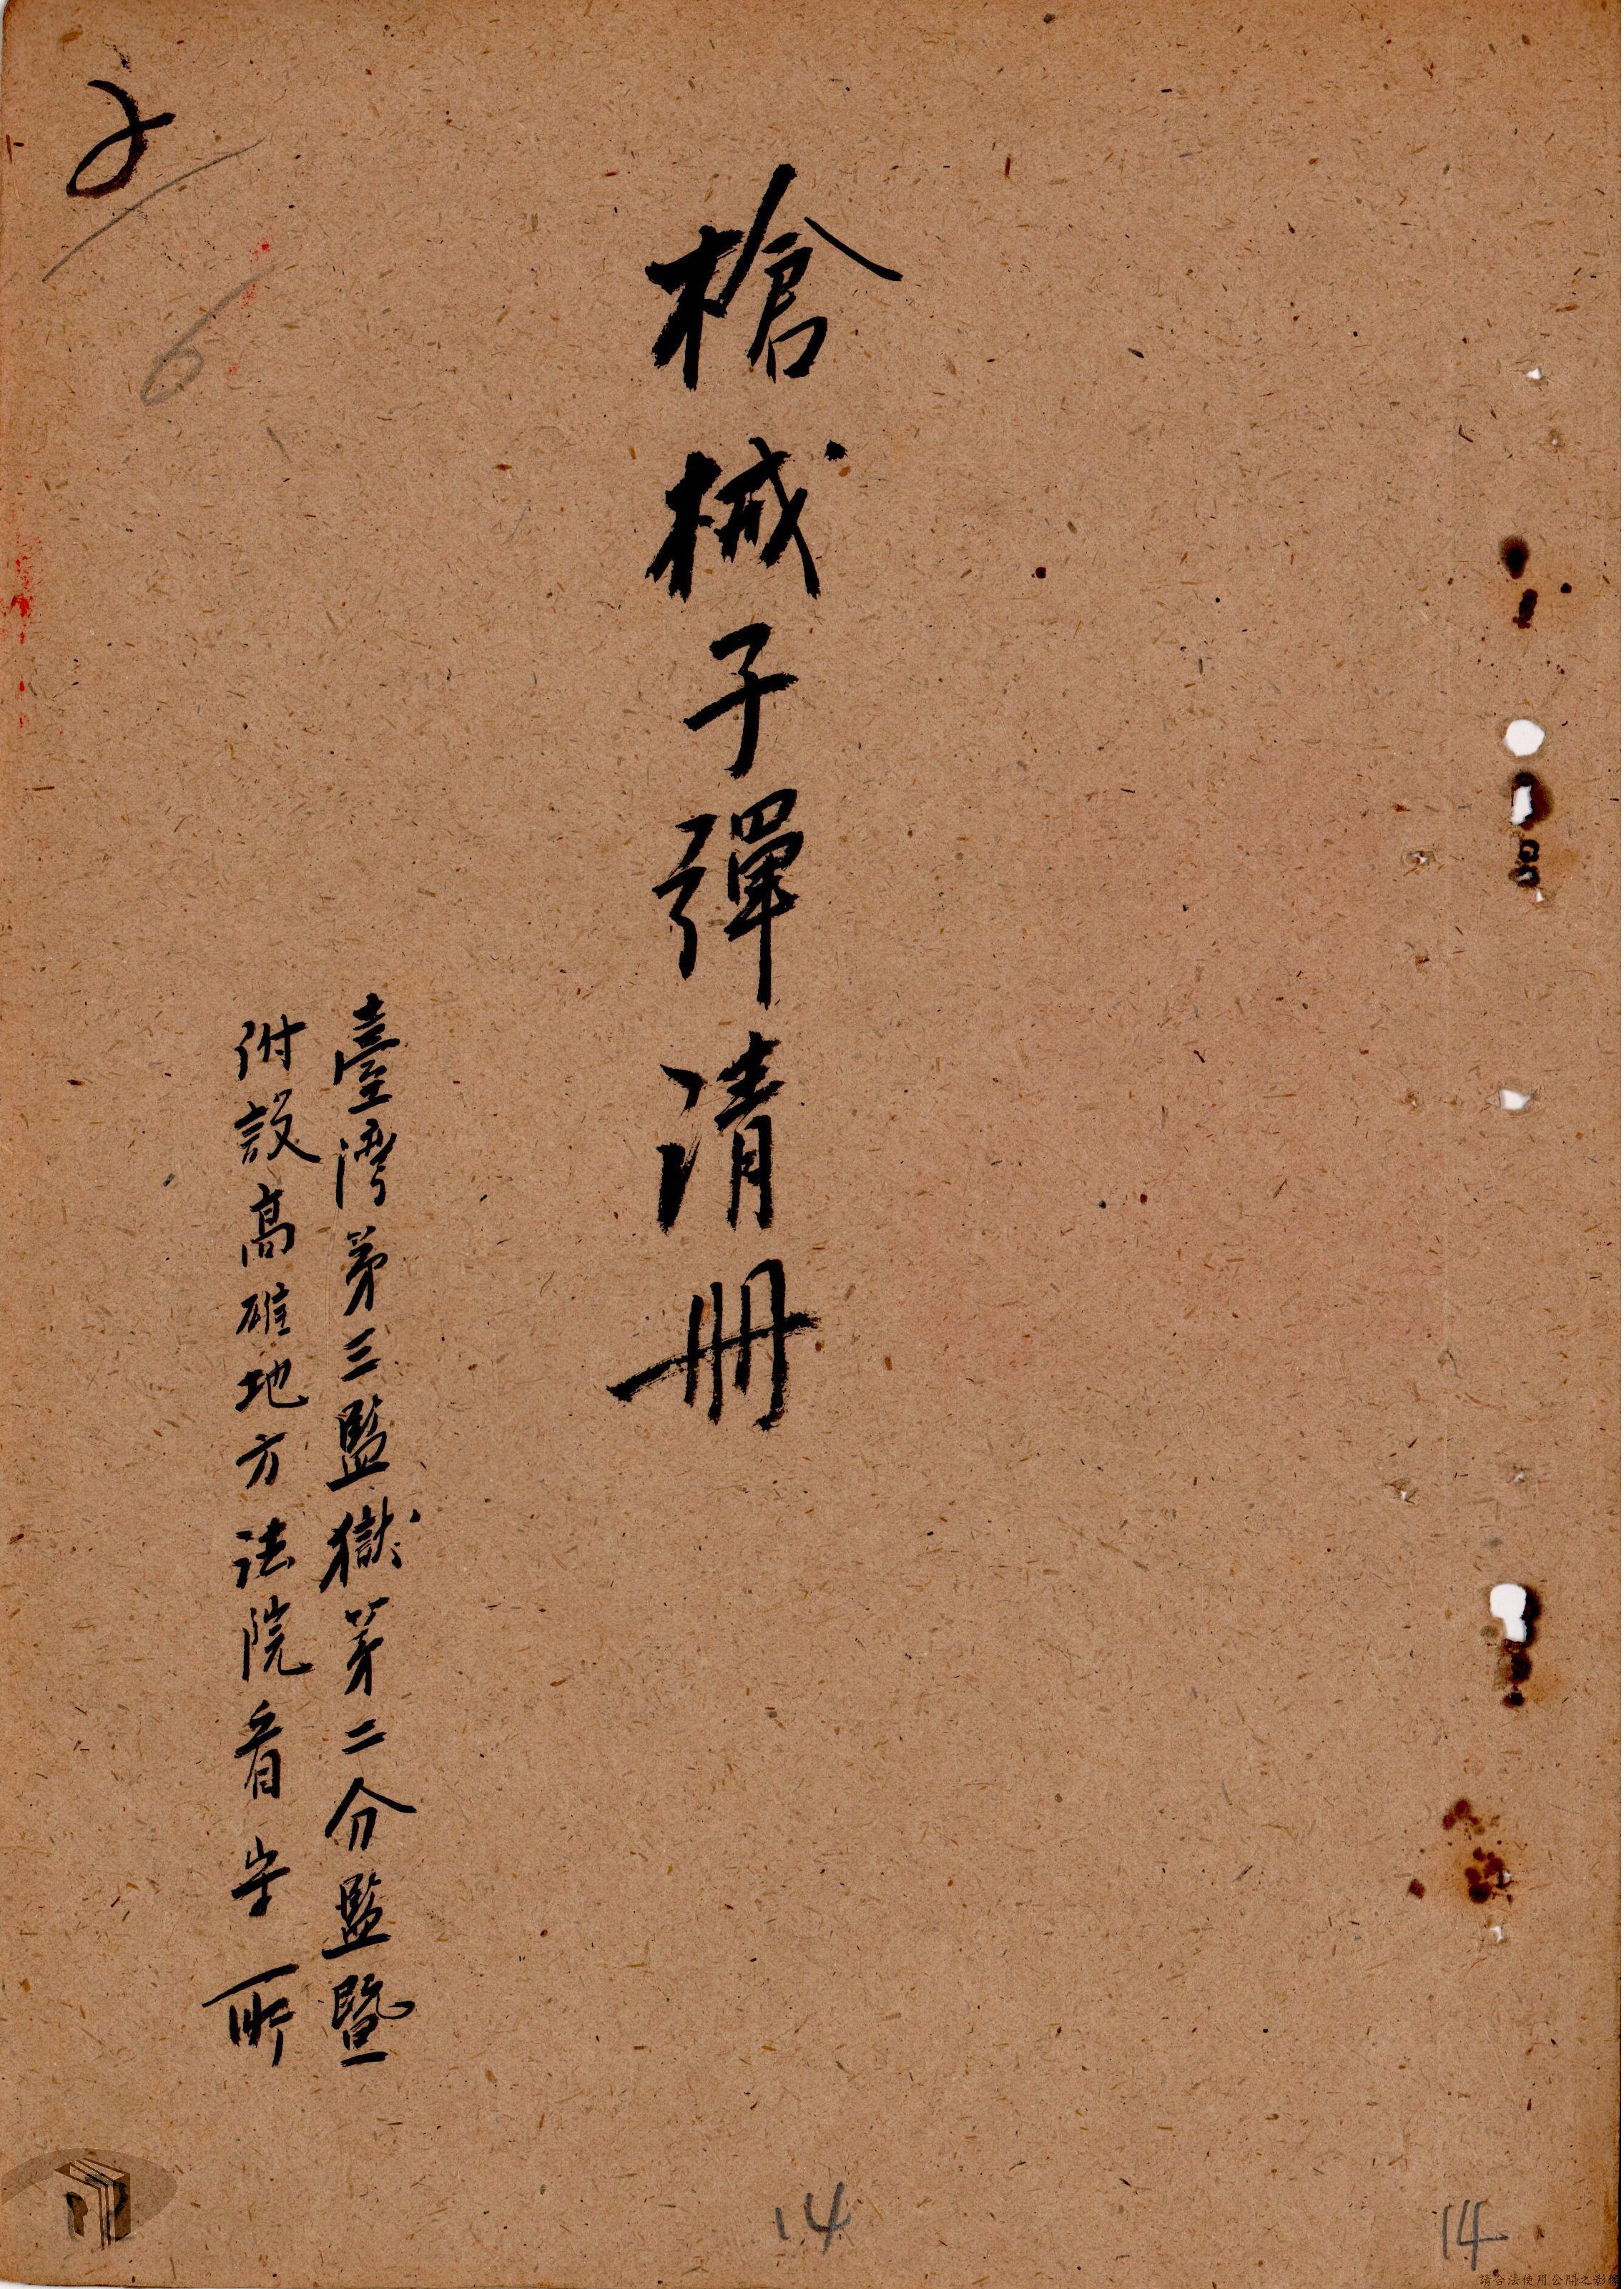 槍械子彈清册
臺灣第三監獄第二分監暨
附設高雄地方法院看守所
6
14
14
請合法使用公開之影像